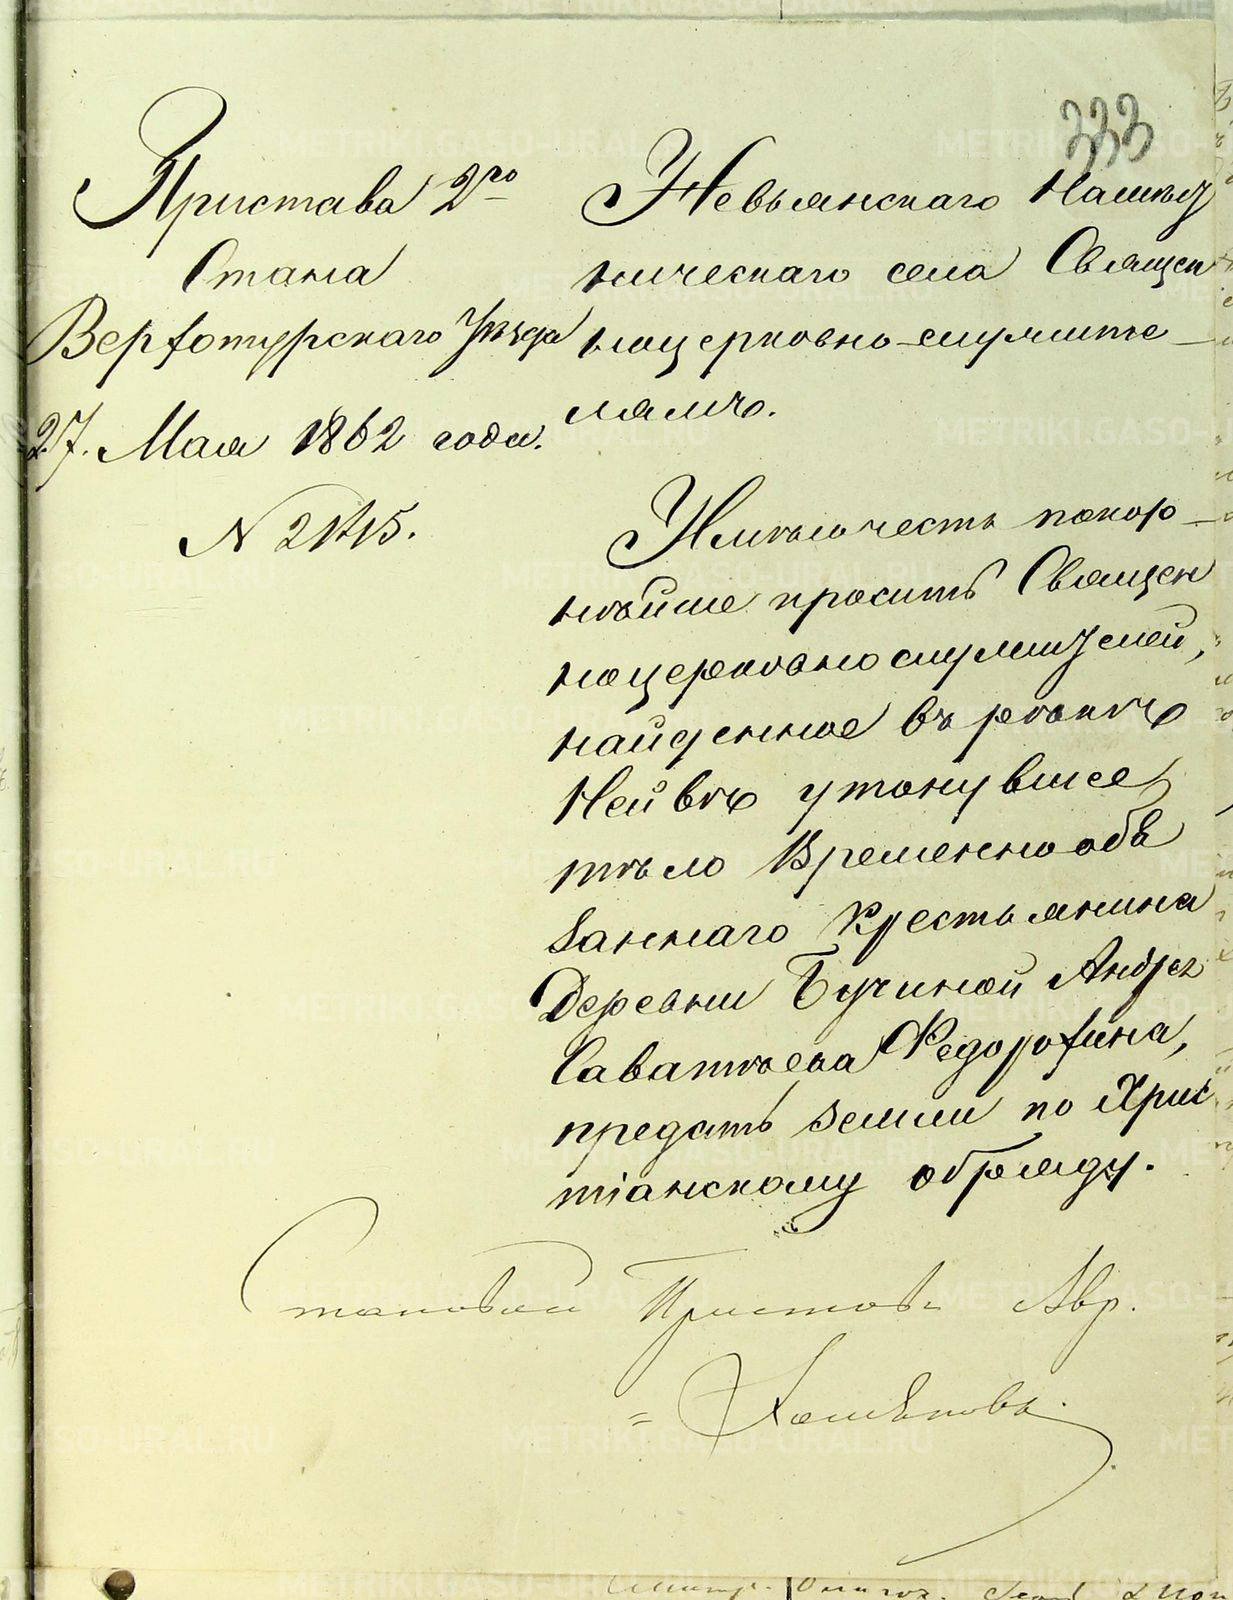 333
Пристава 2го
Стана
Верхотурскаго Уѣзда
27. Мая 1862 года.
N 2115.
Невьянскаго
ническаго села Священ
ноцерковно-служите-
лямъ.
Имѣю честь покор-
нѣйше просить Священ
ноцерковнослужителей,
найденное въ рѣкѣ
Нейвѣ утонувшее
тѣло Временнообя
заннаго Крестьянина
Деревни Бучиной Андрея
Саватѣева Федорохина,
предать земли по Хрис
тіанскому обряду.
Становой Приставъ Авр.
METRIKI.GASO-URAL.RU